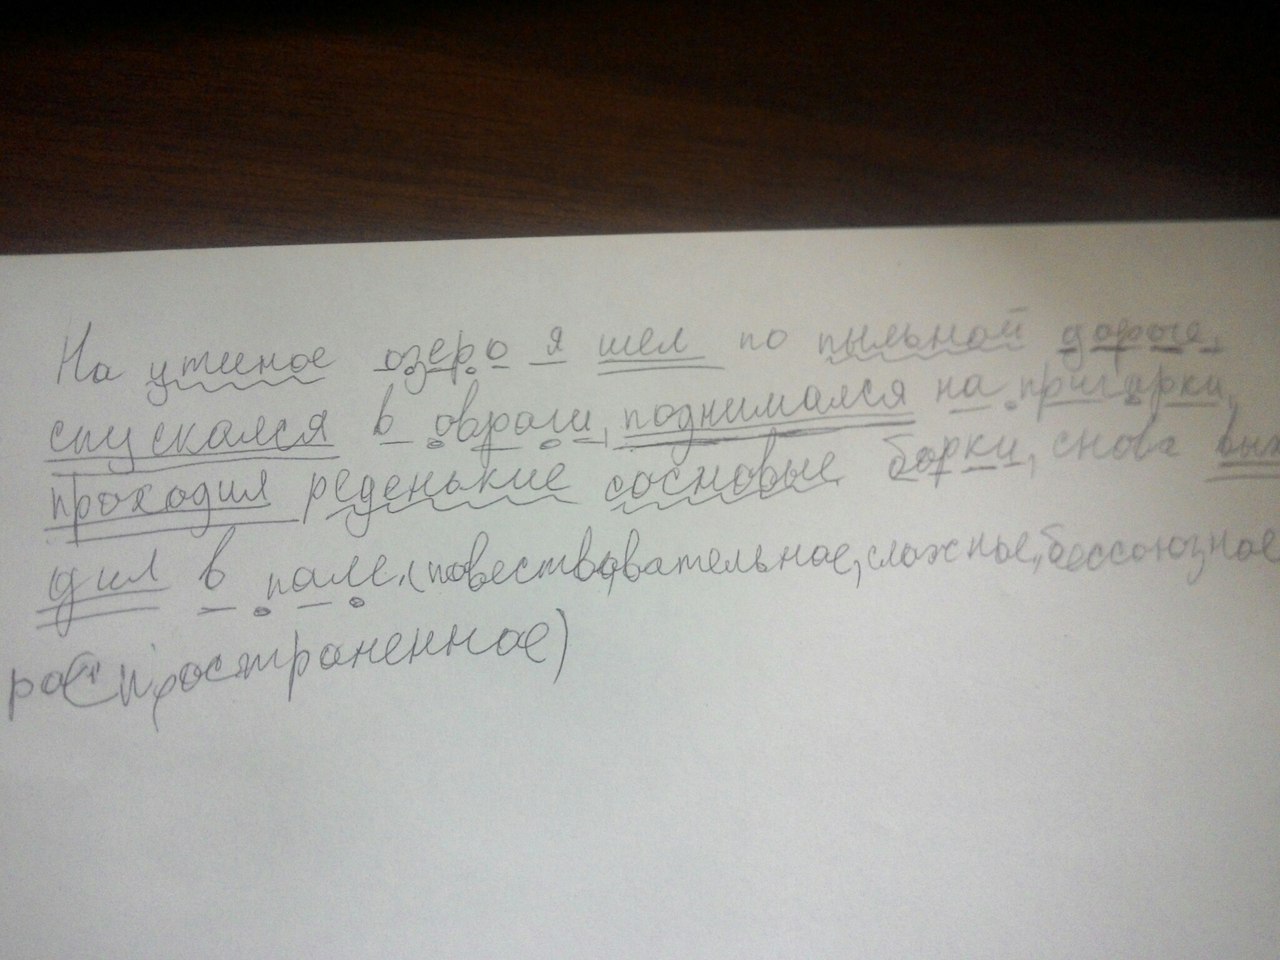 На утиное озеро я шел по пыльной дороге,
спускался в овраги, поднимался на пригорки,
проходил реденькие сосновые борки, снова выхо
дил в поле. (повествовательное, сложное, бессоюзное
распространенное)